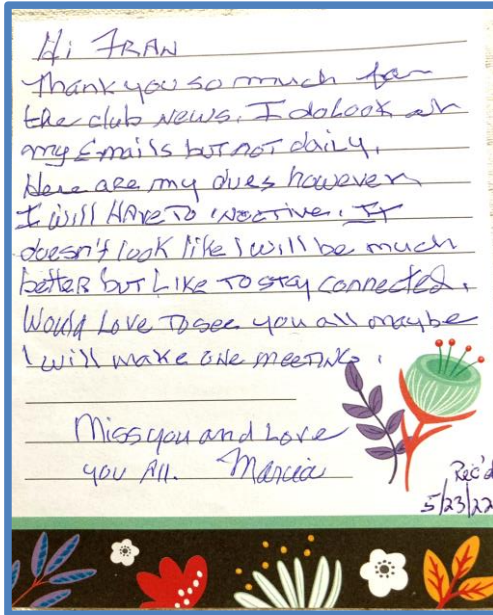 Hi FRAN
Thank you so much for
the club News. I do look at
my Emails but not daily.
Here are my dues however
I will HAVE TO inactive. IT
doesn't look like I will be much
better but Like To stay connected.
Would Love To see you all maybe
I will make one meeting.
Miss you and Love
you All. Marcia
Rec'd
5/23/22